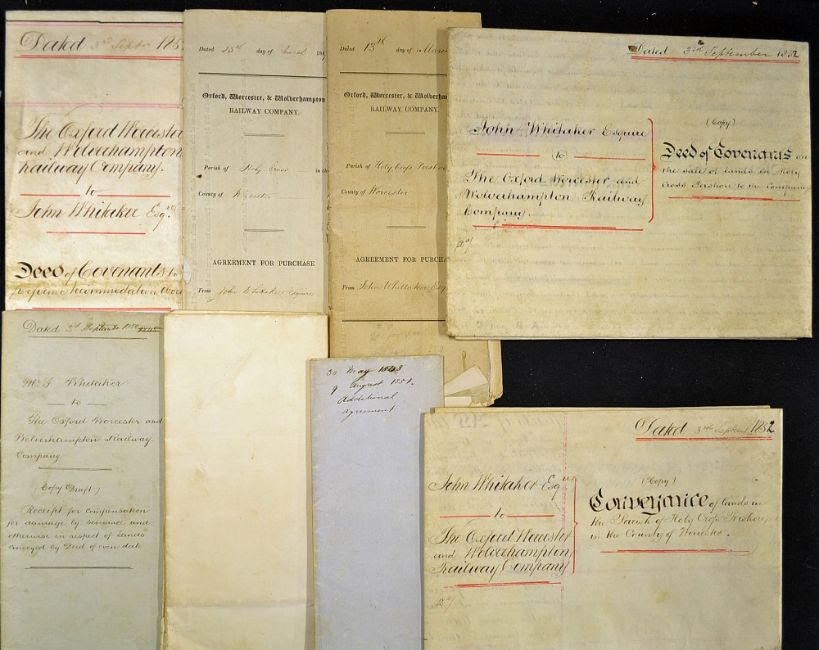 Dated 3rd Septr 185
The Oxford Worcester
and Wolverhampton
Railway Company.
to
John Whitaker Esqre
Deed of Covenants to
accommodation
Dated 15th day of
Oxford, Worcester, & Wolverhampton
RAILWAY COMPANY.
Parish of Holy Cross in the
County of Worcester
AGREEMENT FOR PURCHASE
From John Whitaker Esquire
Dated 13th day of
Oxford, Worcester, & Wolverhampton
RAILWAY COMPANY.
Parish of Holy Cross Pershore
County of Worcester
AGREEMENT FOR PURCHA
From John Whitaker Esq
Dated 3rd September 1852
John Whitaker Esquire
to
The Oxford Worcester and
Wolverhampton Railway
Company.
(Copy)
Deed of Covenants on
the sale of lands in Holy
Cross Pershore to the Company
Dated 3rd September
Mr J. Whitaker
to
The Oxford Worcester and
Wolverhampton Railway
Company
(Copy Draft)
Receipt for compensation
for damage by severance and
otherwise in respect of lands
conveyed by Deed of even date
30 May 1848
9 August 1851.
Additional
Agreement
Dated 3rd Septemr 1852
John Whitaker Esqre
to
The Oxford Worcester
and Wolverhampton
Railway Company
(Copy)
Conveyance of lands in
the Parish of Holy Cross Pershore
in the County of Worcester.